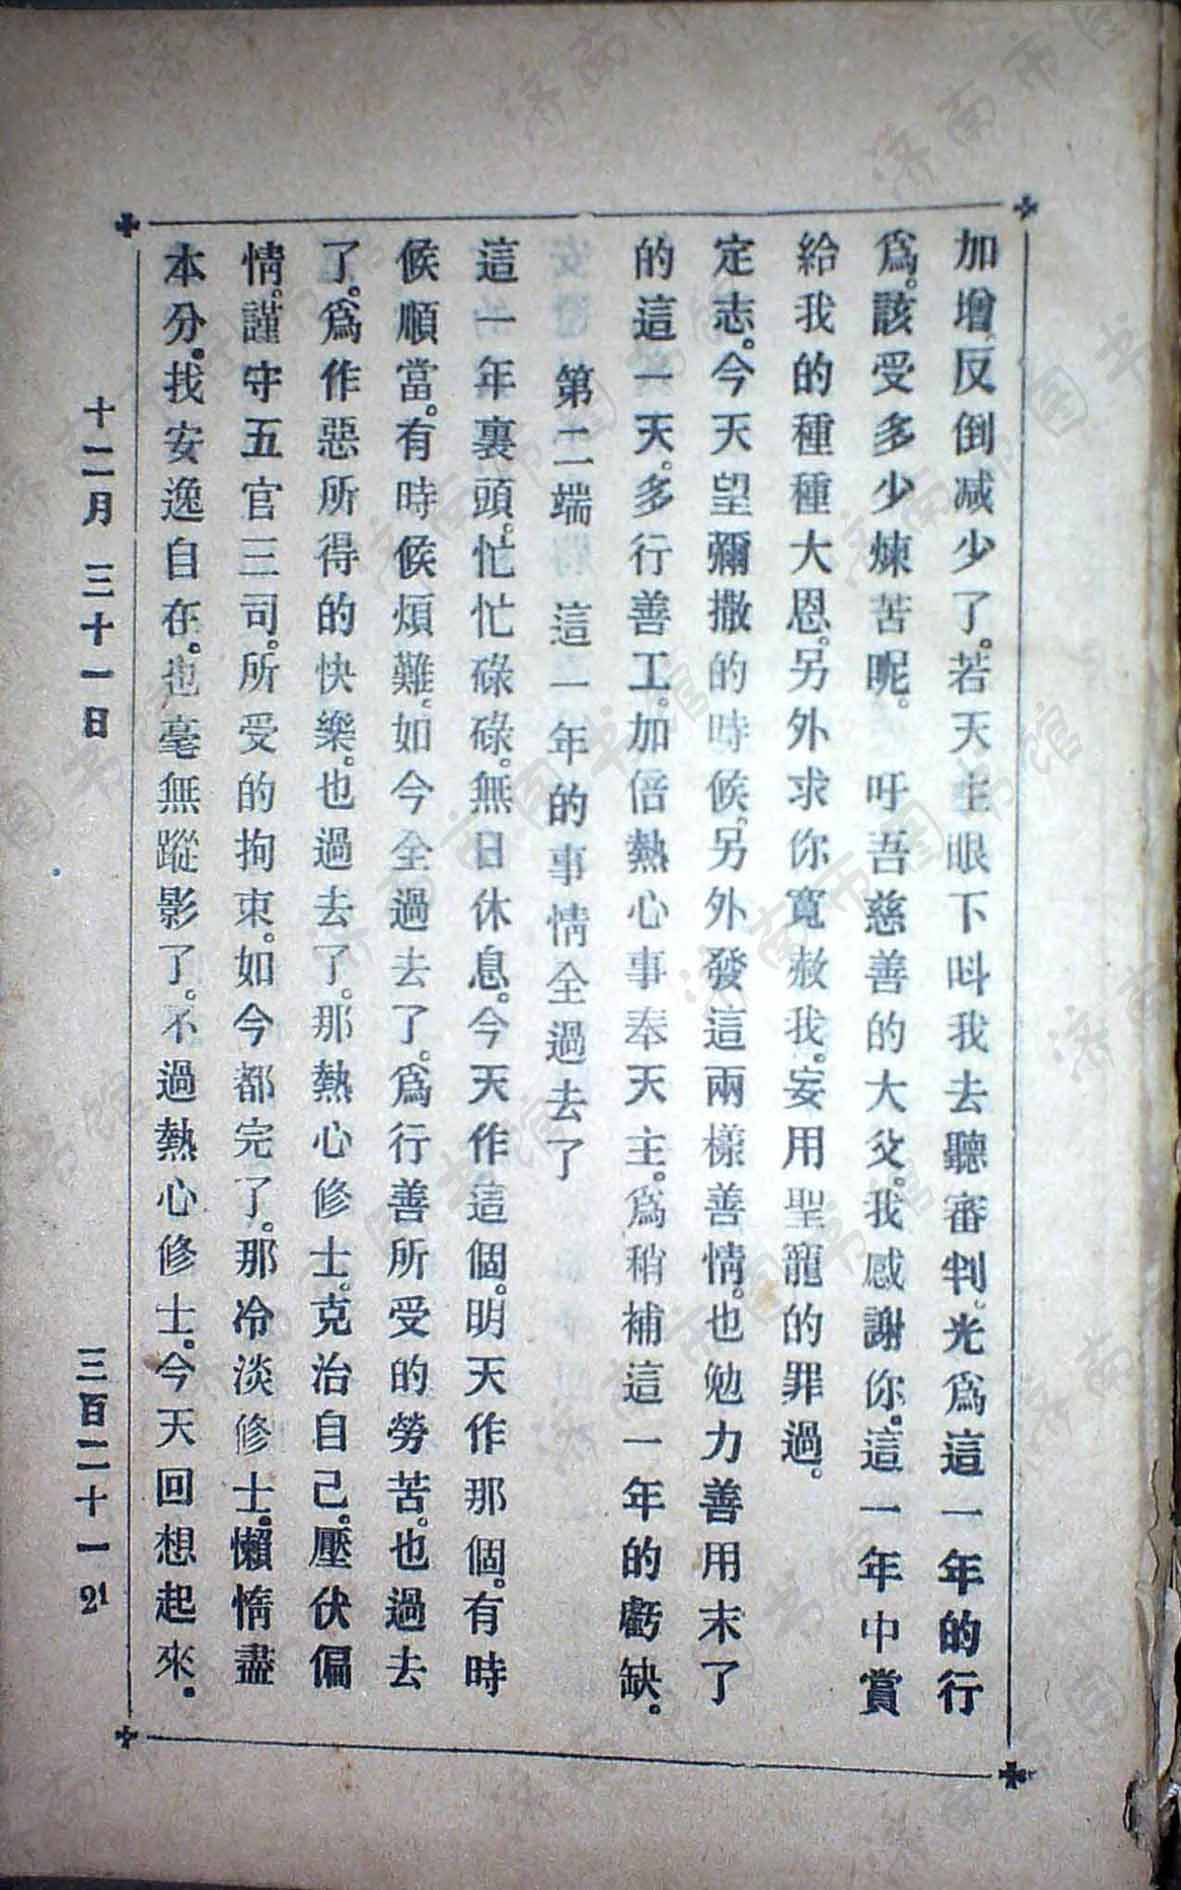 加增反倒減少了。若天主眼下呌我去聽審判。光爲這一年的行
爲。該受多少煉苦呢。　吁吾慈善的大父。我感謝你。這一年中賞
給我的種種大恩。另外求你寬赦我。妄用聖寵的罪過。
定志。今天望彌撒的時候。另外發這兩樣善情。也勉力善用末了
的這一天。多行善工。加倍熱心事奉天主。爲稍補這一年的虧缺。
第二端　這一年的事情全過去了
這一年裏頭。忙忙碌碌。無日休息。今天作這個。明天作那個。有時
候順當。有時候煩難。如今全過去了。爲行善所受的勞苦。也過去
了。爲作惡所得的快樂。也過去了。那熱心修士。克治自己。壓伏偏
情。謹守五官三司。所受的拘束。如今都完了。那冷淡修士。懶惰盡
本分。找安逸自在。也毫無蹤影了。不過熱心修士。今天回想起來。
十二月　三十一日　三百二十一　21
济南市图书馆